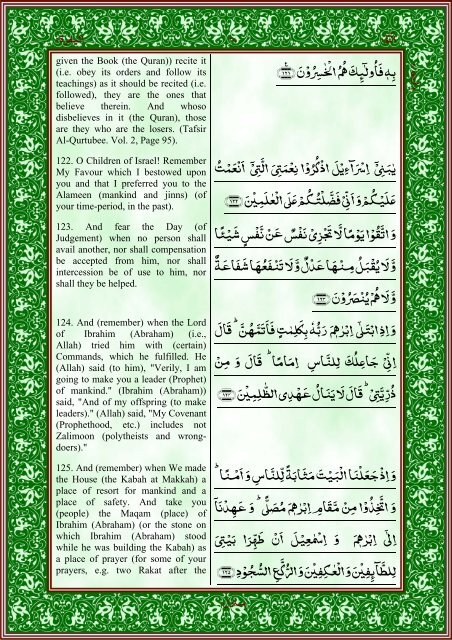 given the Book (the Quran)) recite it
(i.e. obey its orders and follow its
teachings) as it should be recited (i.e.
followed), they are the ones that
believe therein. And whoso
disbelieves in it (the Quran), those
are they who are the losers. (Tafsir
Al-Qurtubee. Vol. 2, Page 95).
بِهٖ فَاُولٰٓئِكَ هُمُ الْخٰسِرُوْنَ ١٢١
122. O Children of Israel! Remember
My Favour which I bestowed upon
you and that I preferred you to the
Alameen (mankind and jinns) (of
your time-period, in the past).
يٰبَنِيْٓ اِسْرَآءِيْلَ اذْكُرُوْا نِعْمَتِيَ الَّتِيْٓ اَنْعَمْتُ
عَلَيْكُمْ وَاَنِّيْ فَضَّلْتُكُمْ عَلَى الْعٰلَمِيْنَ ١٢٢
123. And fear the Day (of
Judgement) when no person shall
avail another, nor shall compensation
be accepted from him, nor shall
intercession be of use to him, nor
shall they be helped.
وَاتَّقُوْا يَوْمًا لَّا تَجْزِيْ نَفْسٌ عَنْ نَّفْسٍ شَيْـًٔا
وَّلَا يُقْبَلُ مِنْهَا عَدْلٌ وَّلَا تَنْفَعُهَا شَفَاعَةٌ
وَّلَا هُمْ يُنْصَرُوْنَ ١٢٣
124. And (remember) when the Lord
of Ibrahim (Abraham) (i.e.,
Allah) tried him with (certain)
Commands, which he fulfilled. He
(Allah) said (to him), "Verily, I am
going to make you a leader (Prophet)
of mankind." (Ibrahim (Abraham))
said, "And of my offspring (to make
leaders)." (Allah) said, "My Covenant
(Prophethood, etc.) includes not
Zalimoon (polytheists and wrong-
doers)."
وَاِذِ ابْتَلٰٓى اِبْرٰهٖمَ رَبُّهٗ بِكَلِمٰتٍ فَاَتَمَّهُنَّ ؕ قَالَ
اِنِّيْ جَاعِلُكَ لِلنَّاسِ اِمَامًا ؕ قَالَ وَ مِنْ
ذُرِّيَّتِيْ ؕ قَالَ لَا يَنَالُ عَهْدِي الظّٰلِمِيْنَ ١٢٤
125. And (remember) when We made
the House (the Kabah at Makkah) a
place of resort for mankind and a
place of safety. And take you
(people) the Maqam (place) of
Ibrahim (Abraham) (or the stone on
which Ibrahim (Abraham) stood
while he was building the Kabah) as
a place of prayer (for some of your
prayers, e.g. two Rakat after the
وَاِذْ جَعَلْنَا الْبَيْتَ مَثَابَةً لِّلنَّاسِ وَ اَمْنًا ؕ
وَ اتَّخِذُوْا مِنْ مَّقَامِ اِبْرٰهٖمَ مُصَلًّى ؕ وَ عَهِدْنَآ
اِلٰٓى اِبْرٰهٖمَ وَ اِسْمٰعِيْلَ اَنْ طَهِّرَا بَيْتِيَ
لِلطَّآئِفِيْنَ وَ الْعٰكِفِيْنَ وَ الرُّكَّعِ السُّجُوْدِ ١٢٥